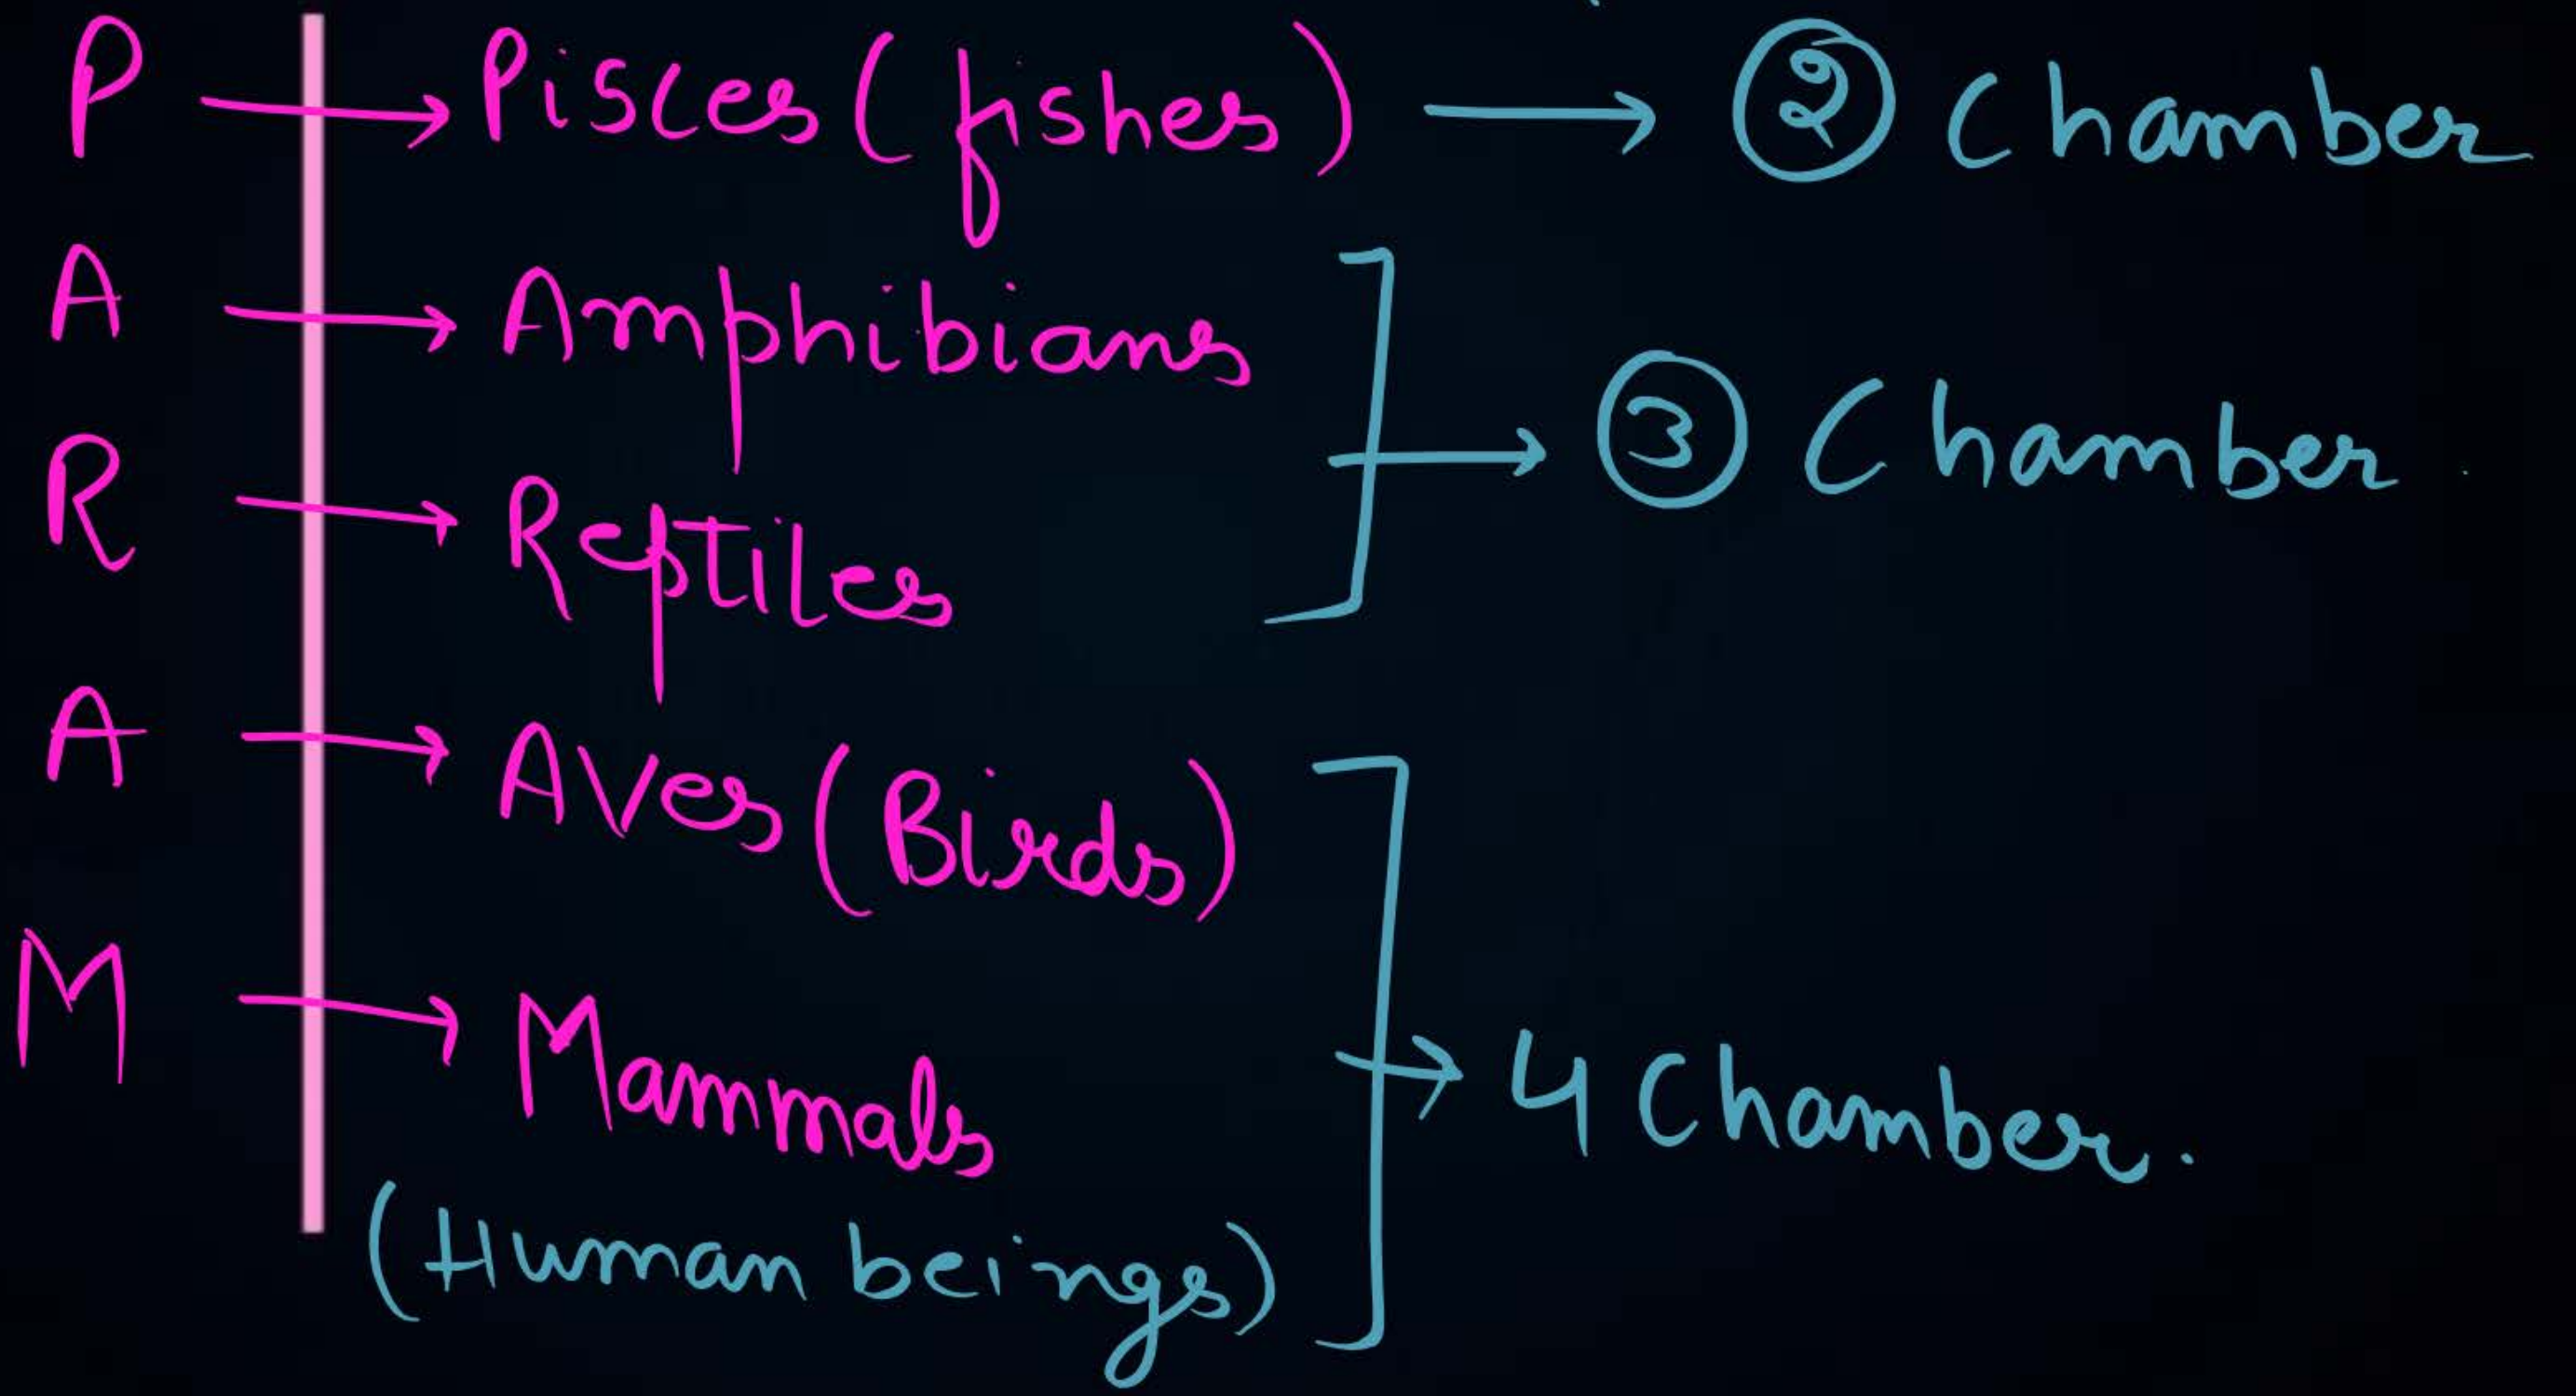 P → Pisces (fishes) → ② Chamber
A → Amphibians
R → Reptiles
→ ③ Chamber
A → Aves (Birds)
M → Mammals
(Human beings)
→ 4 Chamber.